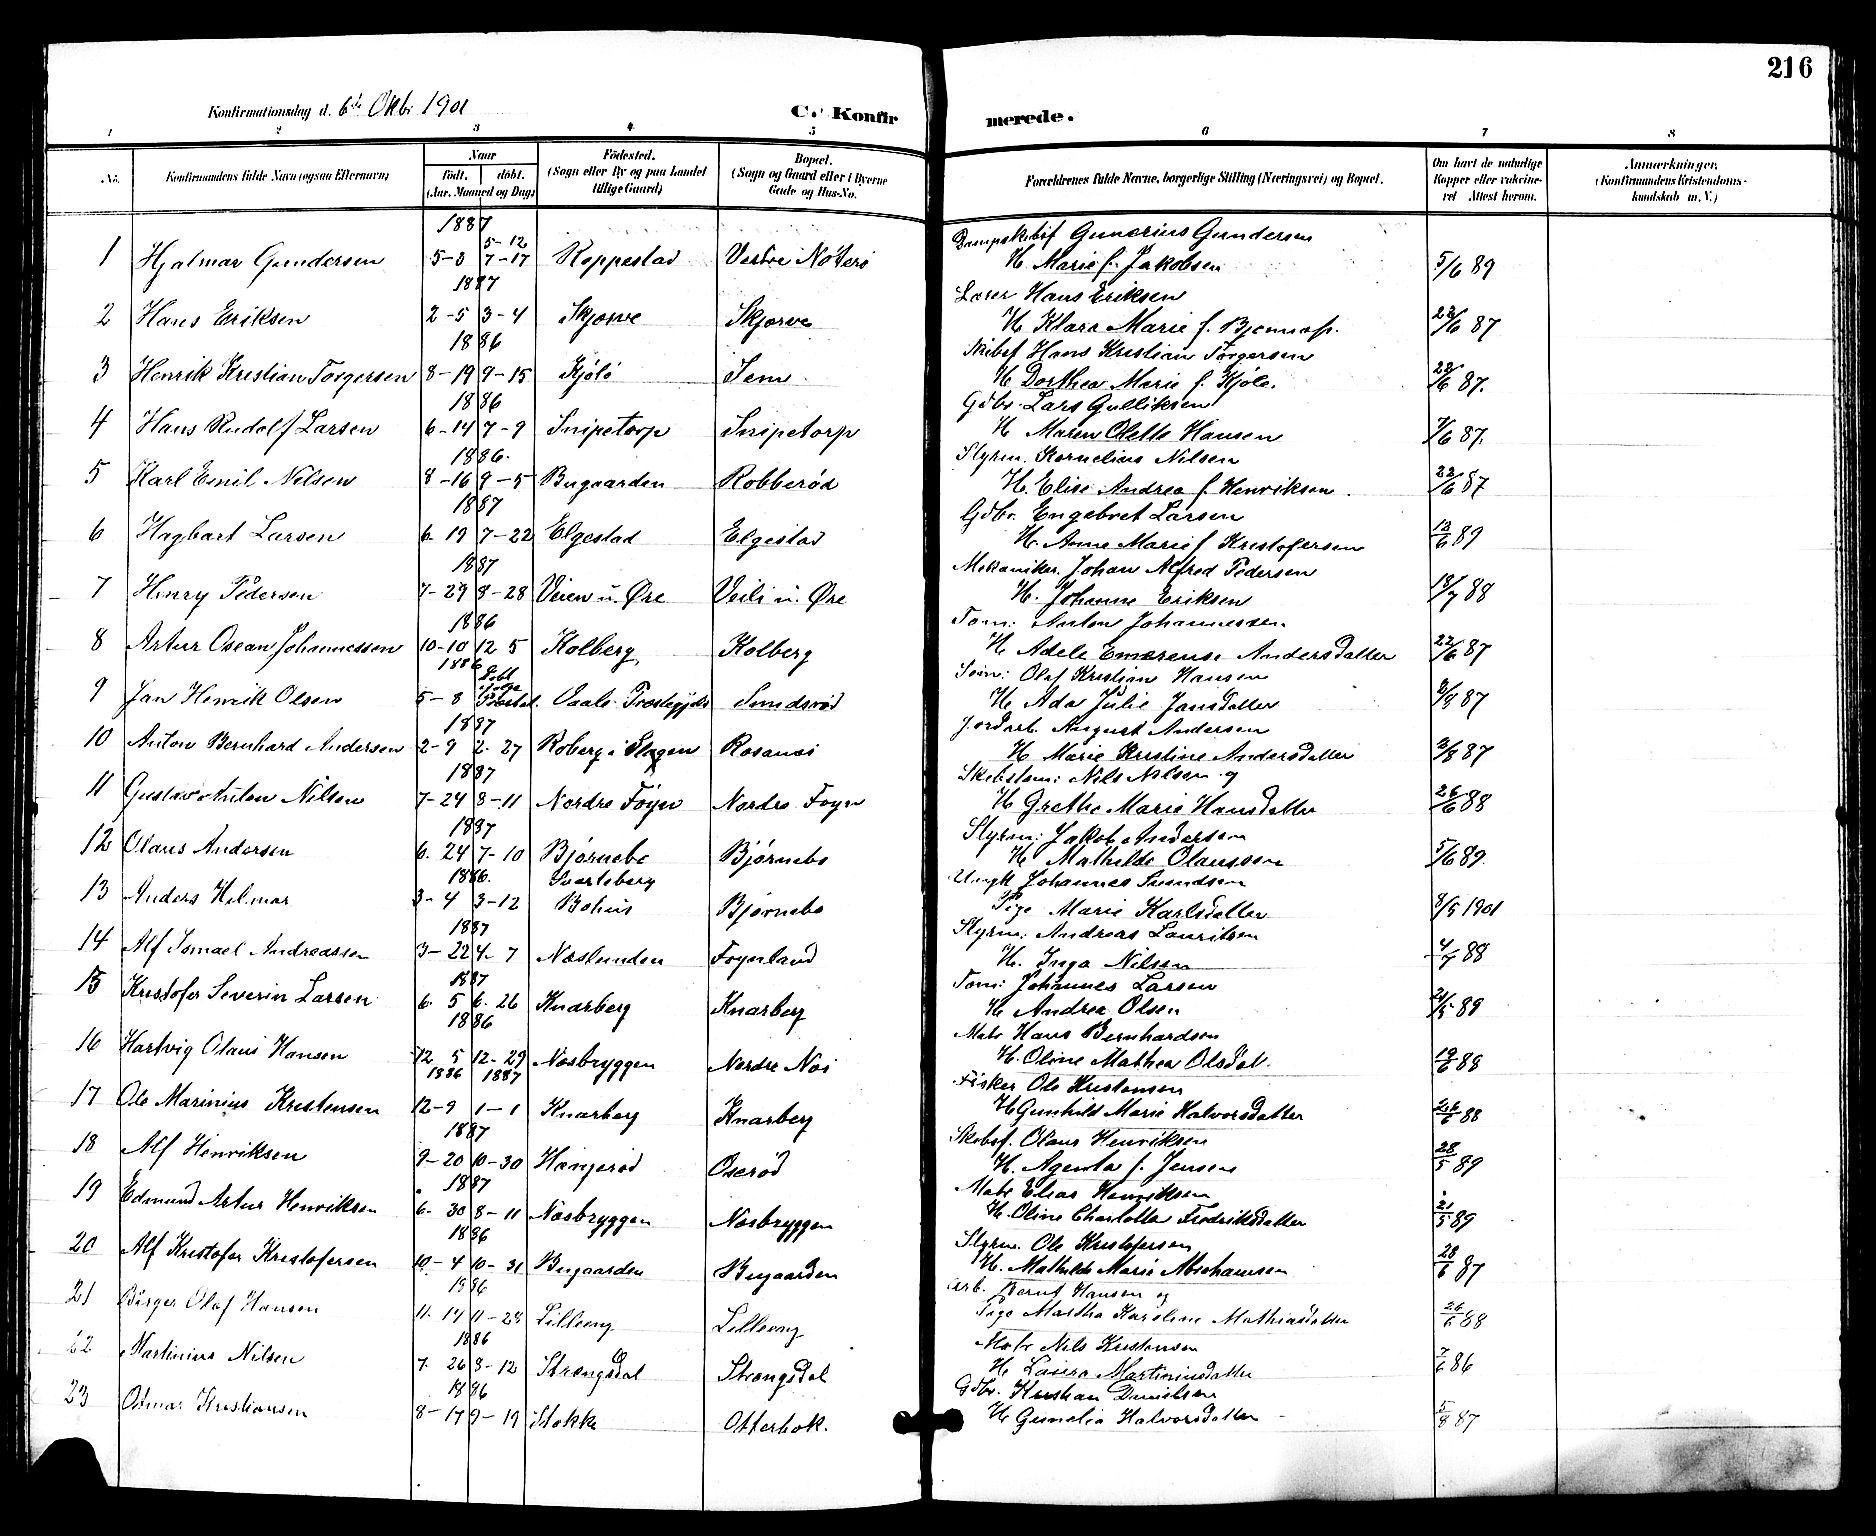 216
Konfirmationsdag d. 6te Oktbr 1901
C. Konfirmerede.
1 2 3 4 5 6 7 8
No.
Konfirmandens fulde Navn (ogsaa Efternavn)
Naar
født. døbt.
(Aar, Maaned og Dag)
Födested.
(Sogn eller By og paa Landet
tillige Gaard)
Bopæl.
(Sogn og Gaard eller i Byerne
Gade og Hus-No.
Forældrenes fulde Navne, borgerlige Stilling (Næringsvei) og Bopæl.
Om havt de naturlige
Kopper eller vakcine-
ret Attest herom.
Anmærkninger.
(Konfirmandens Kristendoms-
kundskab m. V.)
1887
1 Hjalmar Gundersen 5-3 5-12 7-17 Koppestad Vestre Nöterö Dampskibsf Gunerius Gundersen
H. Marie f. Jakobsen 5/6 89
1887
2 Hans Eriksen 2-5 3-4 Skjærve Skjærve Lærer Hans Eriksen
H Klara Marie f. 22/6 87
1886
3 Henrik Kristian Torgersen 8-19 9-15 Kjölö Sem Skibsf Hans Kristian Torgersen
H Dorthea Marie f. Kjöle. 22/6 87.
1886
4 Hans Rudolf Larsen 6-14 7-9 Snipetorp Snipetorp Gdbr. Lars Gulliksen
H Maren Olette Hansen 7/6 87.
1886.
5 Karl Emil Nilsen 8-16 9-5 Bugaarden Robberød Styrm. Kornelius Nilsen
H. Elise Andrea f. Henriksen. 22/6 87
1887
6 Hagbart Larsen 6-19 7-22 Elgestad Elgestad Gdbr. Engebret Larsen
H. Anne Marie f. Kristofersen 12/6 89
1887
7 Henry Pedersen 7-29 8-28 Veien u. Øre Veili u. Øre Mekaniker. Johan Alfred Pedersen
H. Johanne Eriksen 18/7 88
1886
8 Artur Osean Johannessen 10-10 12 5 Kolberg Kolberg Tom: Anton Johannessen
H Adele Emerense Andersdatter 22/6 87
1886
9 Jan Henrik Olsen 5-8 Döbt Vaale Præstegjæld Sundsröd Söm: Olaf Kristian Hansen
H Ada Julie Jansdatter 87
1887
10 Anton Bernhard Andersen 2-9 2-27 Roberg i Slagen Rosanes Jordarb. August Andersen
H Marie Kristine Andersdatter 87
1887
11 Gustav Anton Nilsen 7-24 8-11 Nordre Föyn Nordre Foyn Skibstøm: Nils Nilsen og
H Grethe Marie Hansdatter 26/6 88
1887
12 Olaus Andersen 6. 24 7-10 Bjørnebo Bjørnebo Styrm: Jakob Andersen
H Mathilde Olaussen 5/6 89.
1886.
13 Anders Hilmar 3-4 3-12 Svarteberg Bohus Bjørnebo Ungk Johannes Svendsen
Pige Marie Karlsdatter 8/5 1901
1887
14 Alf Ismael Andreassen 3-22 4-7 Næslunden Foynland Styrm: Andreas Lauritsen
H. Inga Nilsen 88
1887
15 Kristofer Severin Larsen 6. 5 6. 26 Knarberg Knarberg Tom: Johannes Larsen
H Andrea Olsen 21/5 89
1886
16 Hartvig Olaus Hansen 12 5 12-29 Næsbryggen Nordre Næs Matr Hans Bernhardsen
H. Oline Mathea Olsdat. 19/6 88
1886 1887
17 Ole Marinius Kristensen 12-9 1-1 Knarberg Knarberg Fisker Ole Kristensen
H Gunhild Marie Halvorsdatter 26/6 88
1887
18 Alf Henriksen 9-20 10-30 Hængerød Oserød Skibsf. Olaus Henriksen
H. Agenta f. Jensen 28/5 89
1887
19 Edmund Artur Henriksen 6. 30 8-11 Næsbryggen Næsbryggen Matr Elias Henriksen
H. Oline Charlotte Fredriksdatter 21/5 89
1886
20 Alf Kristofer Kristofersen 10-4 10-31 Bugaarden Bugaarden Styrm. Ole Kristofersen
H. Mathilde Marie Abrahamsen 28/6 87
1886
21 Birger Olaf Hansen 11. 14 11-28 Lilleeng Lilleeng Arb. Bernt Hansen og
Pige Martha Karoline Mathiasdatter 26/6 88
1886
22 Martinius Nilsen 7. 26 8-12 Strengsdal Strengsdal Matr Nils Kristensen
H Martiniusdatter 7/6 86
1886
23 Otmar Kristiansen 8-17 9-19 Stokke Otterbok. Gdbr. Kristian Danielsen
H Gunelia Halvorsdatter 5/8 87